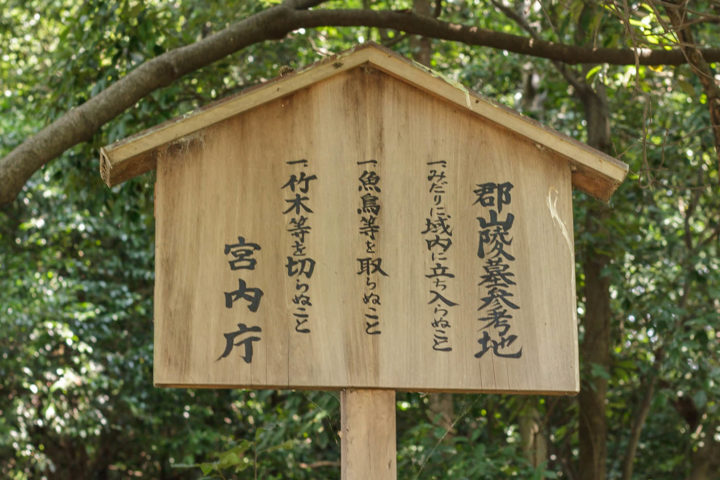 郡山陵墓参考地
一、みだりに域内に立ち入らぬこと
一、魚鳥等を取らぬこと
一、竹木等を切らぬこと
宮内庁